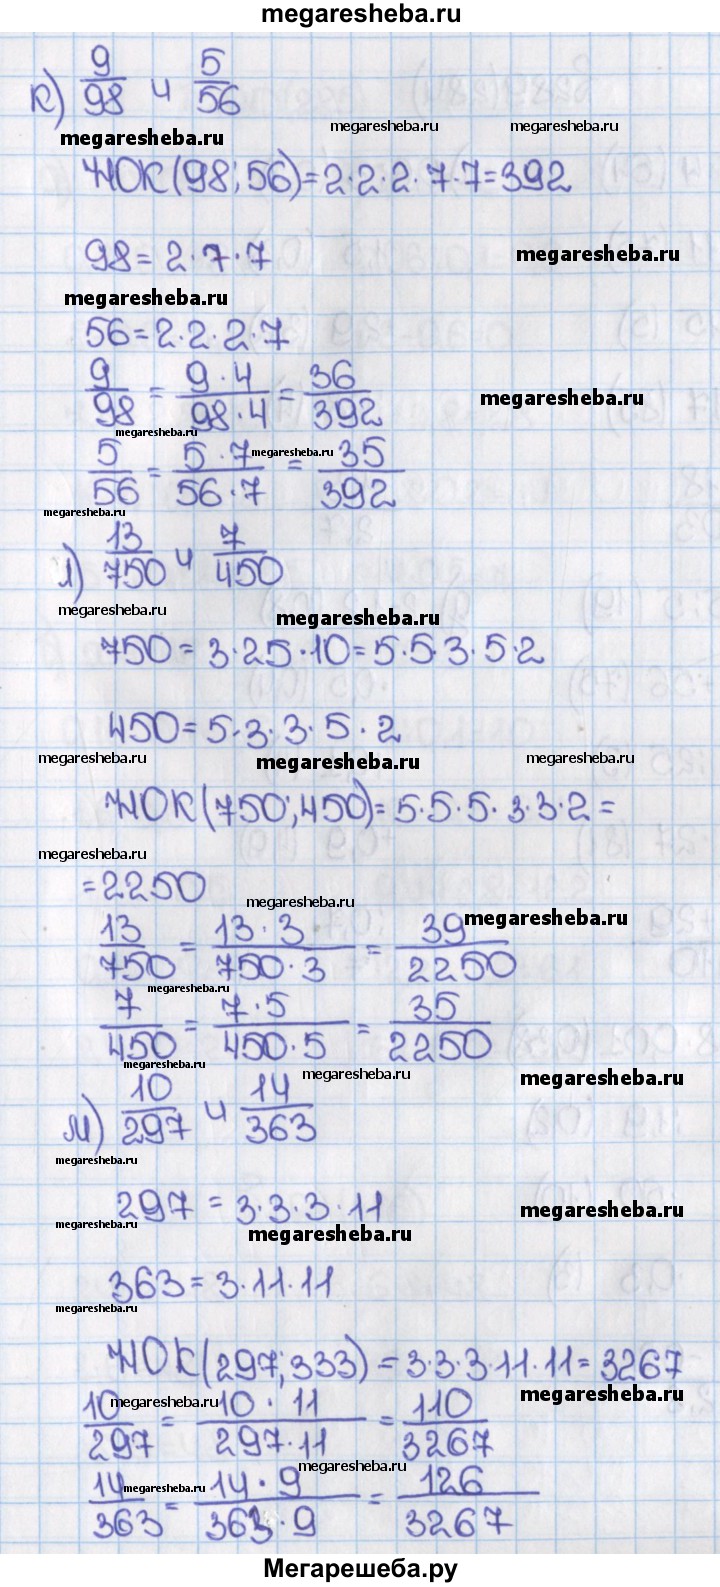 megaresheba.ru
к) 9/98 и 5/56
megaresheba.ru
megaresheba.ru megaresheba.ru
НОК(98; 56)=2·2·2·7·7=392
98=2·7·7
megaresheba.ru
megaresheba.ru
56=2·2·2·7
9/98 = 9·4/98·4 = 36/392
megaresheba.ru
megaresheba.ru
5/56 = 5·7/56·7 = 35/392
megaresheba.ru
megaresheba.ru
л) 13/750 и 7/450
megaresheba.ru
megaresheba.ru
750=3·25·10=5·5·3·5·2
450=5·3·3·5·2
megaresheba.ru megaresheba.ru megaresheba.ru
НОК(750; 450)=5·5·5·3·3·2=
megaresheba.ru
=2250
megaresheba.ru
megaresheba.ru
13/750 = 13·3/750·3 = 39/2250
megaresheba.ru
7/450 = 7·5/450·5 = 35/2250
megaresheba.ru
megaresheba.ru
megaresheba.ru
м) 10/297 и 14/363
megaresheba.ru
297=3·3·3·11
megaresheba.ru
megaresheba.ru
megaresheba.ru
363=3·11·11
megaresheba.ru
НОК(297; 333)=3·3·3·11·11=3267
megaresheba.ru
megaresheba.ru
10/297 = 10·11/297·11 = 110/3267
megaresheba.ru
megaresheba.ru
14/363 = 14·9/363·9 = 126/3267
Мегарешеба.ру